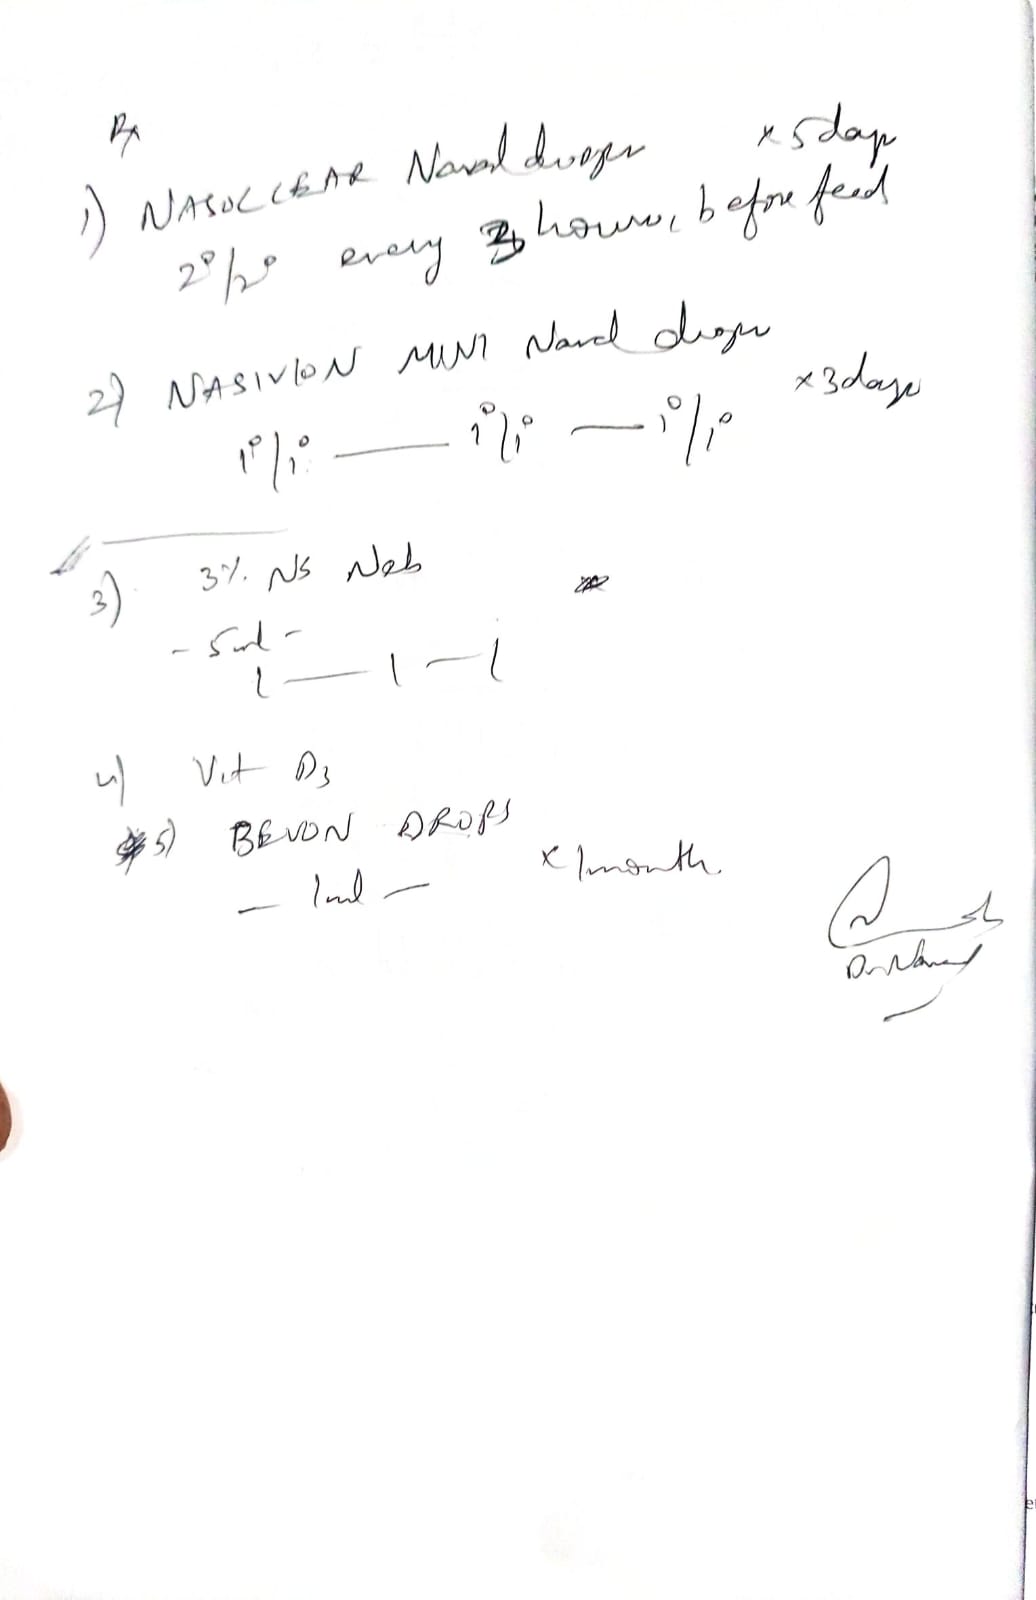 Rx
1) NASOCLEAR Nasal drops x 5 days
2°/2° every hours, before feed
2) NASIVION MINI Nasal drops
x 3 days
1°/1° — 1°/1° — 1°/1°
3) 3% NS Neb
- 5ml -
1 — 1 — 1
4) Vit D3
5) BEVON DROPS
— 1ml — x 1month.
Dr